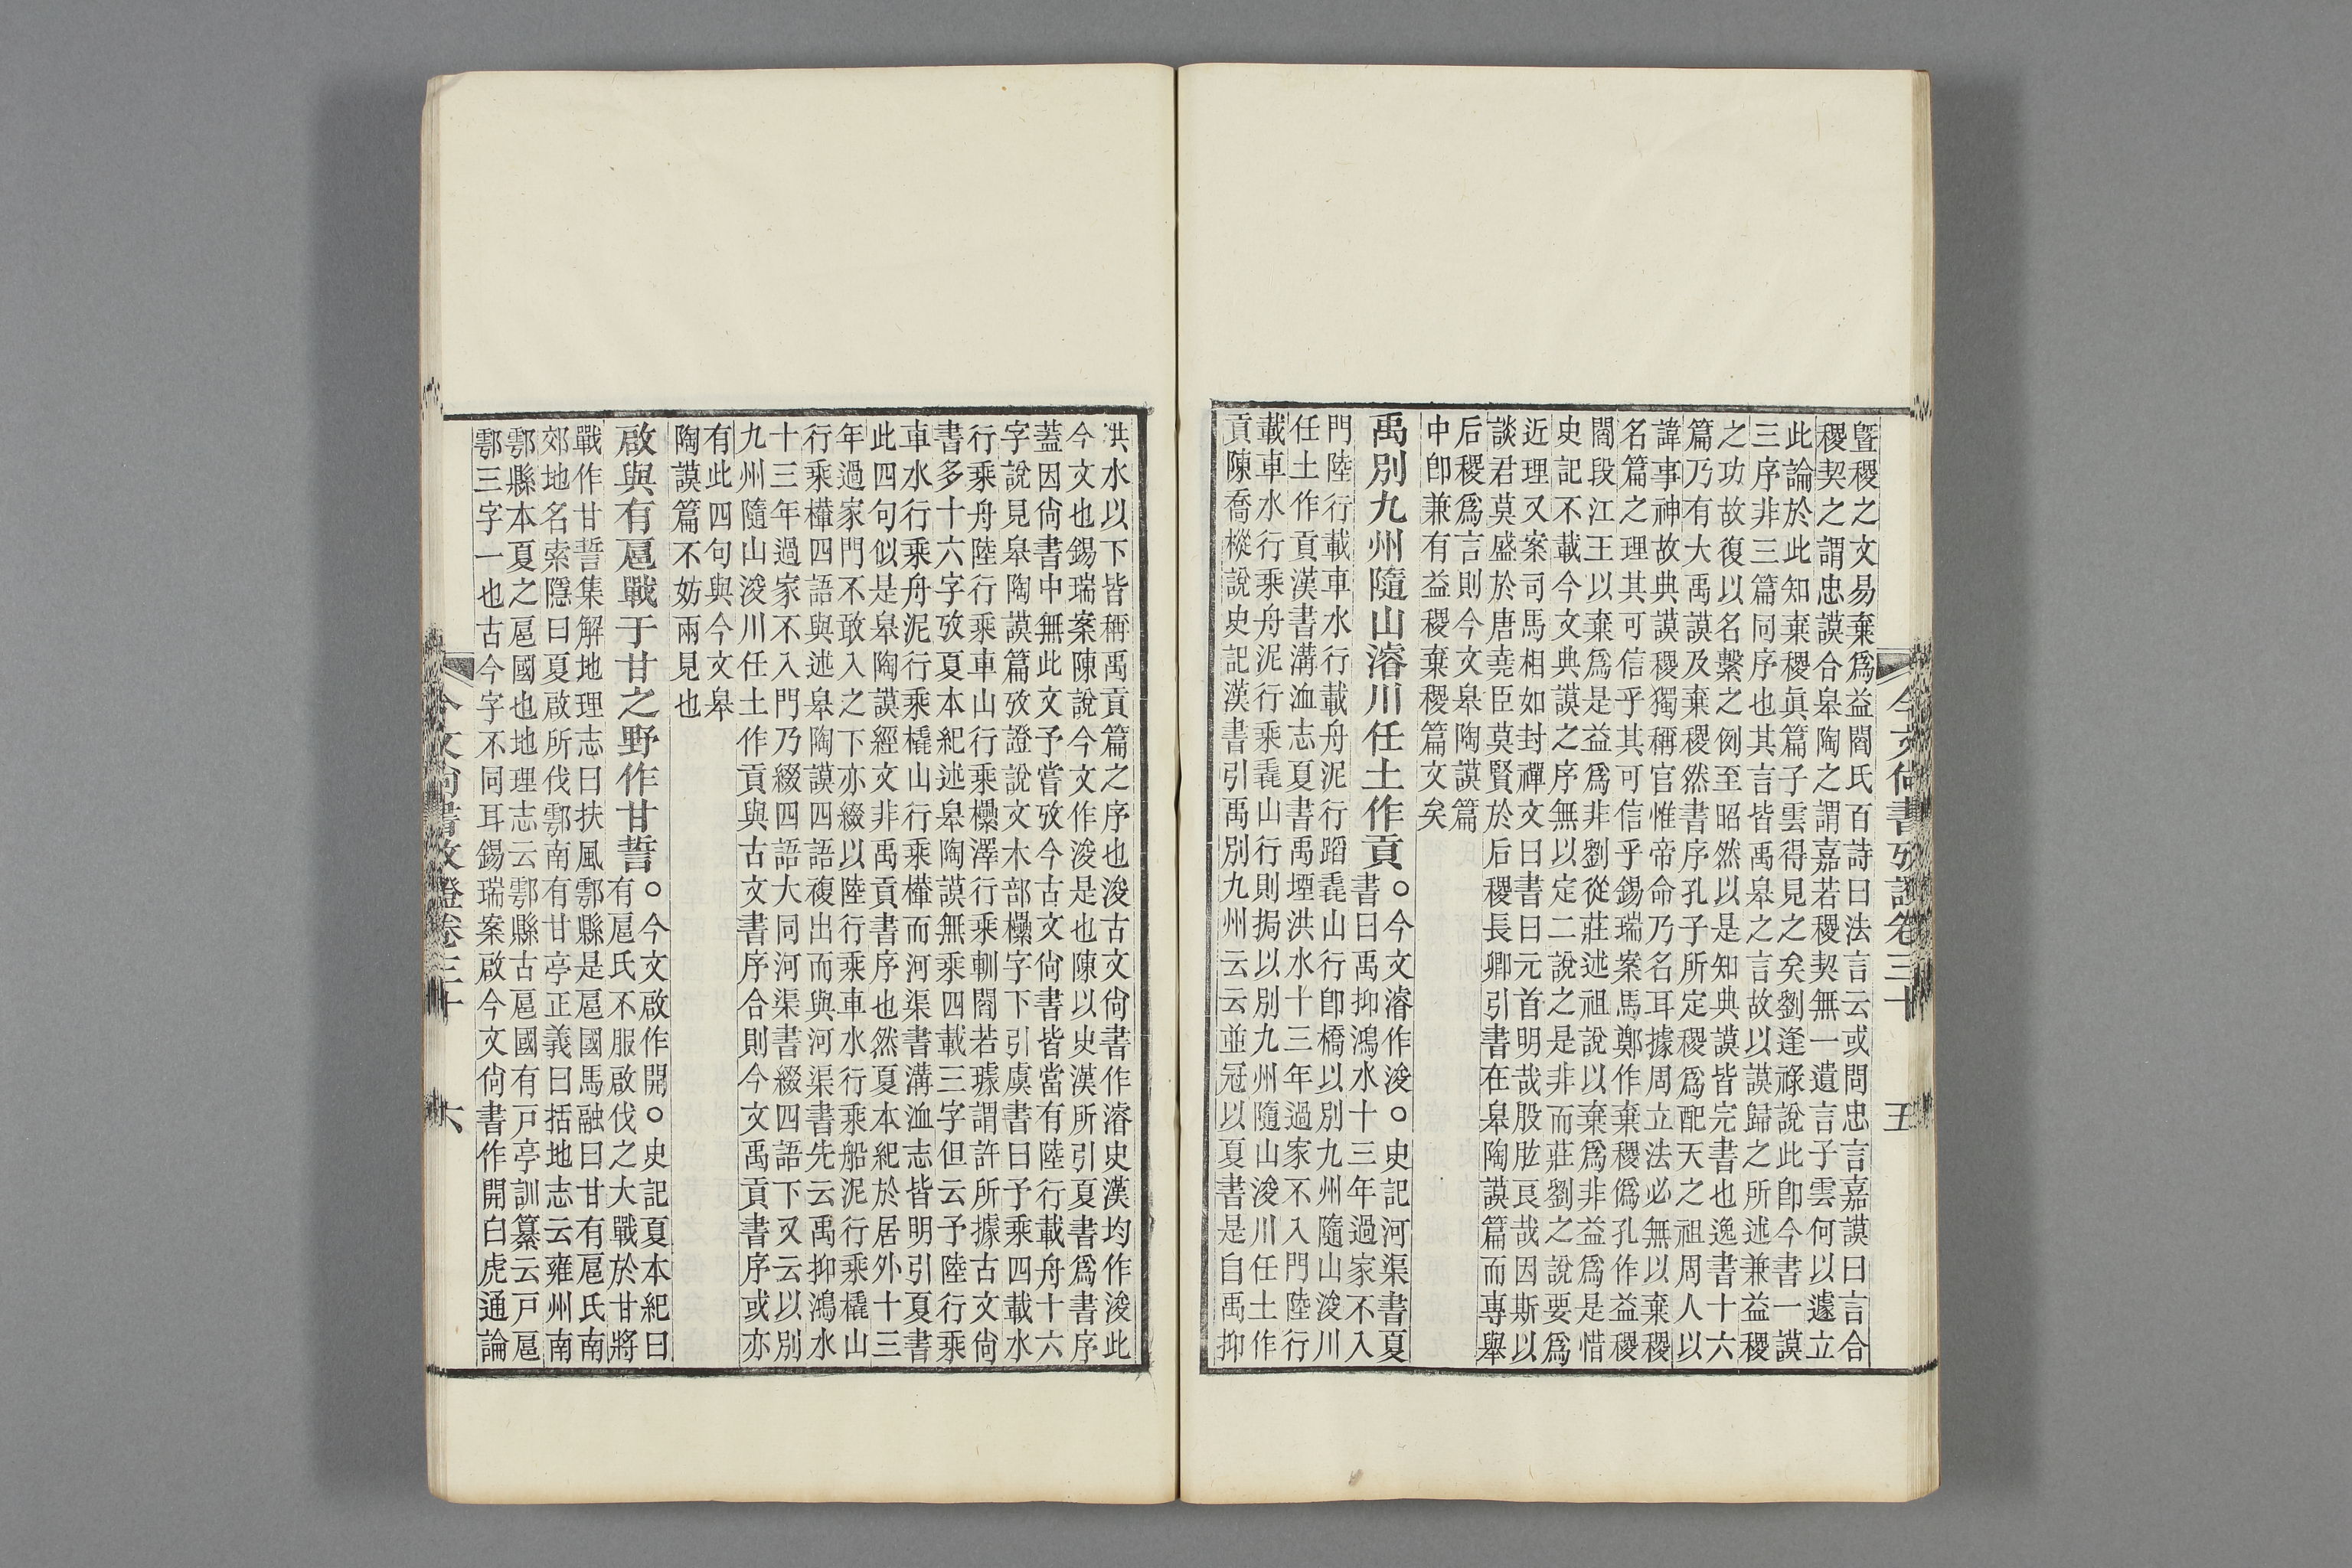 曁稷之文易棄爲益閻氏百詩曰法言云或問忠言嘉謨曰言合
稷契之謂忠謨合皋陶之謂嘉若稷契無一遺言子雲何以遽立
此論於此知棄稷眞篇子雲得見之矣劉逢祿說此卽今書一謨
三序非三篇同序也其言皆禹皋之言故以謨歸之所述兼益稷
之功故復以名繫之例至昭然以是知典謨皆完書也逸書十六
篇乃有大禹謨及棄稷然書序孔子所定稷爲配天之祖周人以
諱事神故典謨稷獨稱官惟帝命乃名耳據周立法必無以棄稷
名篇之理其可信乎其可信乎錫瑞案馬鄭作棄稷僞孔作益稷
閻段江王以棄爲是益爲非劉從莊述祖說以棄爲非益爲是惜
史記不載今文典謨之序無以定二說之是非而莊劉之說要爲
近理又案司馬相如封禪文曰書曰元首明哉股肱良哉因斯以
談君莫盛於唐堯臣莫賢於后稷長卿引書在皋陶謨篇而專舉
后稷爲言則今文皋陶謨篇
中卽兼有益稷棄稷篇文矣
禹別九州隨山濬川任土作貢
○今文濬作浚○史記河渠書夏
書曰禹抑鴻水十三年過家不入
門陸行載車水行載舟泥行蹈毳山行卽橋以別九州隨山浚川
任土作貢漢書溝洫志夏書禹堙洪水十三年過家不入門陸行
載車水行乘舟泥行乘毳山行則挶以別九州隨山浚川任土作
貢陳喬樅說史記漢書引禹別九州云云並冠以夏書是自禹抑
今文尙書攷證卷三十
五
洪水以下皆稱禹貢篇之序也浚古文尙書作濬史漢均作浚此
今文也錫瑞案陳說今文作浚是也陳以史漢所引夏書爲書序
蓋因尙書中無此文予嘗攷今古文尙書皆當有陸行載舟十六
字說見皋陶謨篇攷證說文木部欙字下引虞書曰予乘四載水
行乘舟陸行乘車山行乘欙澤行乘輴閻若璩謂許所據古文尙
書多十六字攷夏本紀述皋陶謨無乘四載三字但云予陸行乘
車水行乘舟泥行乘橇山行乘檋而河渠書溝洫志皆明引夏書
此四句似是皋陶謨經文非禹貢書序也然夏本紀於居外十三
年過家門不敢入之下亦綴以陸行乘車水行乘船泥行乘橇山
行乘檋四語與述皋陶謨四語複出而與河渠書先云禹抑鴻水
十三年過家不入門乃綴四語大同河渠書綴四語下又云以別
九州隨山浚川任土作貢與古文書序合則今文禹貢書序或亦
有此四句與今文皋
陶謨篇不妨兩見也
啟與有扈戰于甘之野作甘誓
○今文啟作開○史記夏本紀曰
有扈氏不服啟伐之大戰於甘將
戰作甘誓集解地理志曰扶風鄠縣是扈國馬融曰甘有扈氏南
郊地名索隱曰夏啟所伐鄠南有甘亭正義曰括地志云雍州南
鄠縣本夏之扈國也地理志云鄠縣古扈國有戸亭訓纂云戸扈
鄠三字一也古今字不同耳錫瑞案啟今文尙書作開白虎通論
今文尙書攷證卷三十
六